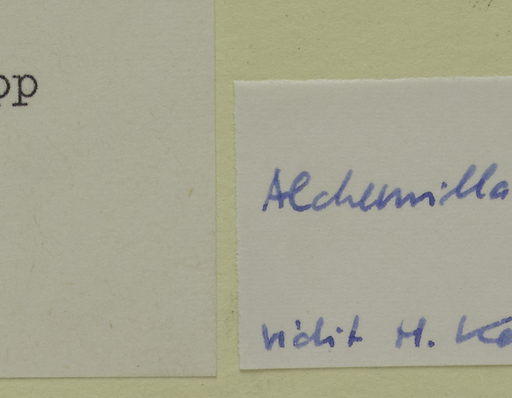 pp
Alchemilla
vidit H. Ke